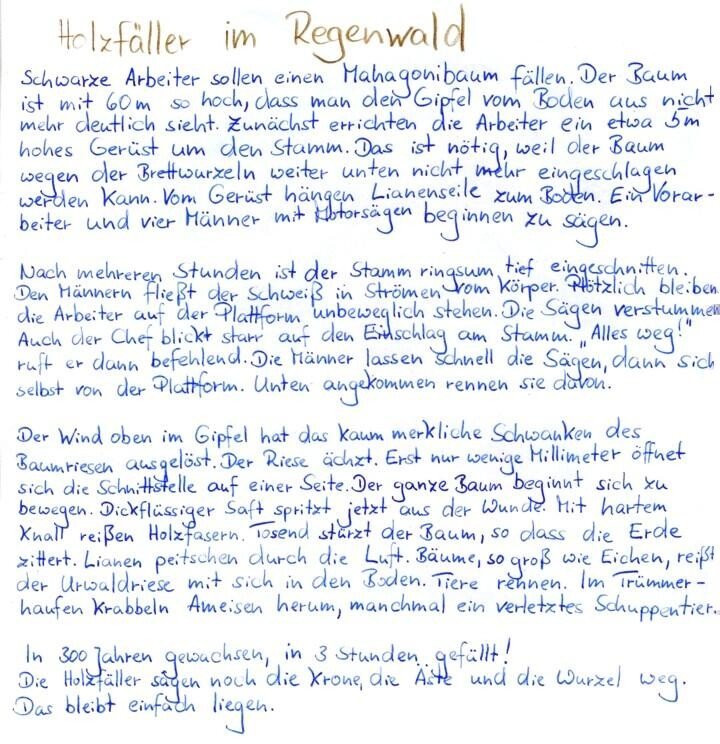 Holzfäller im Regenwald
Schwarze Arbeiter sollen einen Mahagonibaum fällen. Der Baum
ist mit 60m so hoch, dass man den Gipfel vom Boden aus nicht
mehr deutlich sieht. Zunächst errichten die Arbeiter ein etwa 5m
hohes Gerüst um den Stamm. Das ist nötig, weil der Baum
wegen der Brettwurzeln weiter unten nicht mehr eingeschlagen
werden kann. Vom Gerüst hängen Lianenseile zum Boden. Ein Vorar-
beiter und vier Männer mit Motorsägen beginnen zu sägen.
Nach mehreren Stunden ist der Stamm ringsum tief eingeschnitten.
Den Männern fließt der Schweiß in Strömen vom Körper. Plötzlich bleiben
die Arbeiter auf der Plattform unbeweglich stehen. Die Sägen verstummen
Auch der Chef blickt starr auf den Einschlag am Stamm. „Alles weg!"
ruft er dann befehlend. Die Männer lassen schnell die Sägen, dann sich
selbst von der Plattform. Unten angekommen rennen sie davon.
Der Wind oben im Gipfel hat das kaum merkliche Schwanken des
Baumriesen ausgelöst. Der Riese ächzt. Erst nur wenige Millimeter öffnet
sich die Schnittstelle auf einer Seite. Der ganze Baum beginnt sich zu
bewegen. Dickflüssiger Saft spritzt jetzt aus der Wunde. Mit hartem
Knall reißen Holzfasern. Tosend stürzt der Baum, so dass die Erde
zittert. Lianen peitschen durch die Luft. Bäume, so groß wie Eichen, reißt
der Urwaldriese mit sich in den Boden. Tiere rennen. Im Trümmer-
haufen krabbeln Ameisen herum, manchmal ein verletztes Schuppentier.
In 300 Jahren gewachsen, in 3 Stunden gefällt!
Die Holzfäller sägen noch die Krone, die Äste und die Wurzel weg.
Das bleibt einfach liegen.